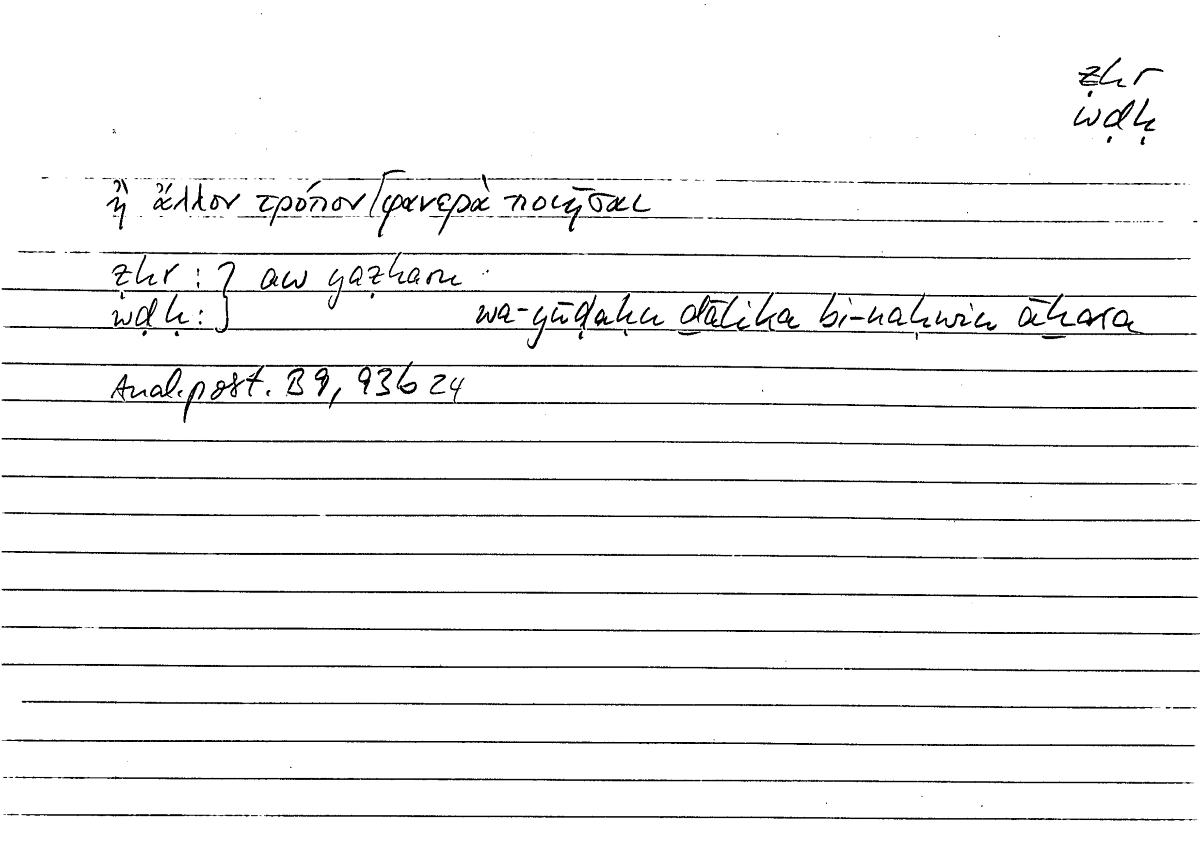 ẓhr
wḍḥ
ἢ ἄλλον τρόπον ⌈φανερὰ ποιῆσαι
ẓhr : } aw yaẓharu
wḍḥ : } wa-yūḍaḥu ḏālika bi-naḥwin āḫara
Anal. post. B 9, 93b 24